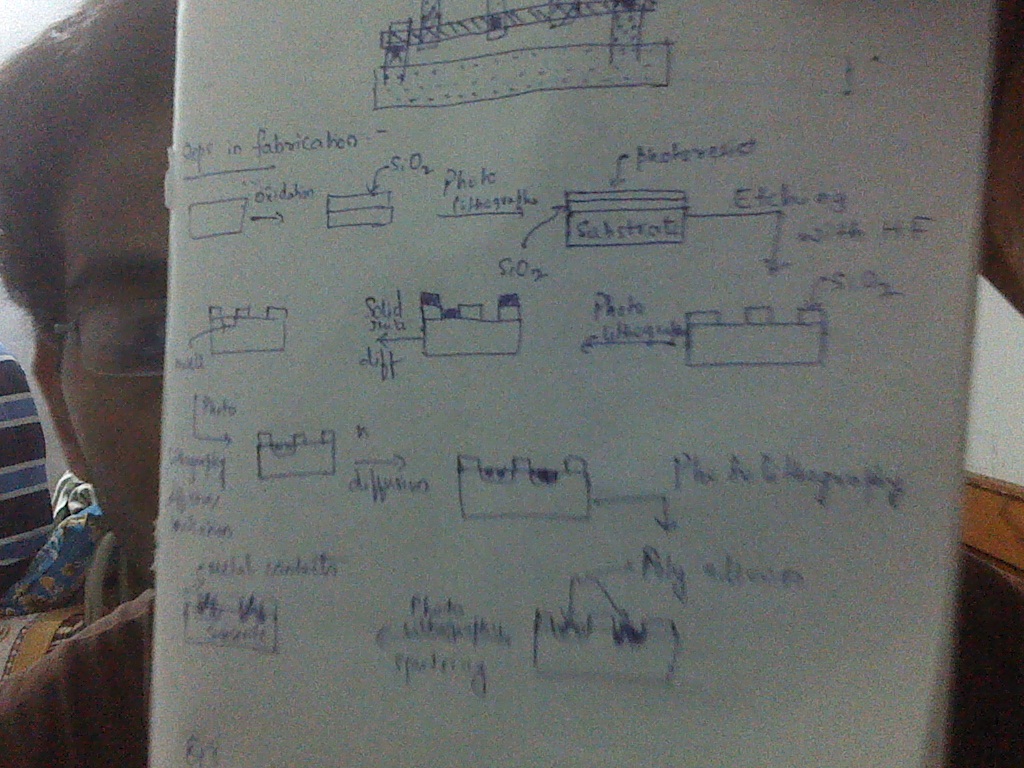 in fabrication:-
oxidation
SiO2
Photo
lithography
photoresist
Substrate
SiO2
Etching
with HF
SiO2
Photo
lithography
Solid
diff
well
Photo
lithography
n
diffusion
Photo lithography
Poly silicon
Photo
lithography
sputering
metal contacts